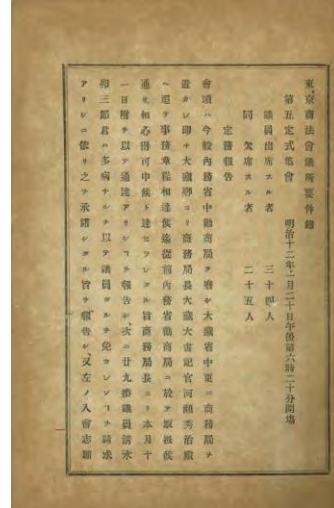 東京商法會議所要件錄
第五定式集會　明治十二年一月二十日午後第六時二十分開場
議員出席スル者　三十四人
同　欠席スル者　二十五人
定務報告
會頭ハ今般內務省中勸商局ヲ廢シ大藏省中更ニ商務局ヲ
置カレ即チ大藏卿ヨリ商務局長大藏大書記官河瀨秀治殿
ヘ還テ事務章程相達候迄從前內務省勸商局ニ於テ取扱候
通リ相心得可申候ト達セラレタル旨商務局長ヨリ本月十
一日附ヲ以テ通達アリシコヲ報告シ次ニ廿九番議員清水
卯三郎君ハ多病ナルヲ以テ議員タルヲ免カレンコヲ請求
アリシニ依リ之ヲ承諾シタル旨ヲ報告シ又左ノ入會志願